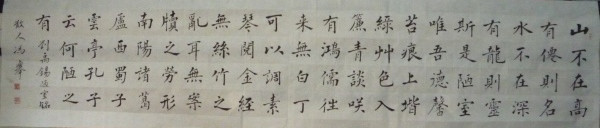 山不在高
有僊則名
水不在深
有龍則靈
斯是陋室
唯吾德馨
苔痕上堦
綠艸色入
簾青談咲
有鴻儒往
来無白丁
可以調素
琴閱金經
無絲竹之
亂耳無案
牘之勞形
南陽諸葛
廬西蜀子
雲亭孔子
云何陋之
有 劉禹錫陋室銘